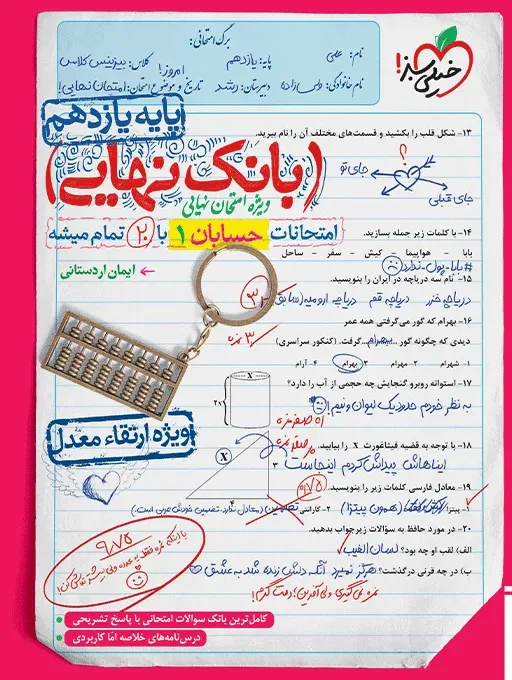 خیلی سبز!
برگ امتحانی:
نام: علی
پایه: یازدهم
کلاس: بیزینس کلاس
نام خانوادگی: داس‌زاده
دبیرستان: رشد
تاریخ و موضوع امتحان: امروز! امتحان نهایی!
پایه یازدهم
(بانک نهایی)
ویژه امتحان نهایی
امتحانات حسابان ۱ با ۲۰ تمام میشه
ایمان اردستانی
ویژه ارتقاء معدل
۱۳- شکل قلب را بکشید و قسمت‌های مختلف آن را نام ببرید.
؟
جای تو
جای قبلی
۱۴- با کلمات زیر جمله بسازید.
بابا - هواپیما - کیش - سفر - ساحل
#بابا-پول-ندارد
۱۵- نام سه دریاچه در ایران را بنویسید.
دریاچه خزر دریاچه قم دریاچه ارومیه (سابق)
۳
۱۶- بهرام که گور می‌گرفتی همه عمر
دیدی که چگونه گور ...بهرام... گرفت. (کنکور سراسری)
۳ نمره
۱- شهرام ۲- مهرام ۳- بهرام ۴- آرام
۱۷- استوانه روبرو گنجایش چه حجمی از آب را دارد؟
به نظر خودم حدود یک لیوان و نیم!
X
2X
۱۸- با توجه به قضیه فیثاغورث X را بیابید.
ایناهاش پیداش کردم اینجاست
X
۳
۴
۱۹- معادل فارسی کلمات زیر را بنویسید.
۰/۷۵
۱- پیتزا (همون پیتزا) ۲- گارانتی تضمین (معادل ندارد. تضمین خودش عربی است.)
۲۰- در مورد حافظ به سؤالات زیر جواب بدهید.
الف) لقب او چه بود؟ لسان الغیب
ب) در چه قرنی درگذشت؟ هرگز نمیرد آنکه دلش زنده شد به عشق
نمره نمی‌گیری ولی آفرین! دمت گرم!
۹/۷۵
کامل‌ترین بانک سوالات امتحانی با پاسخ تشریحی
درس‌نامه‌های خلاصه امّا کاربردی